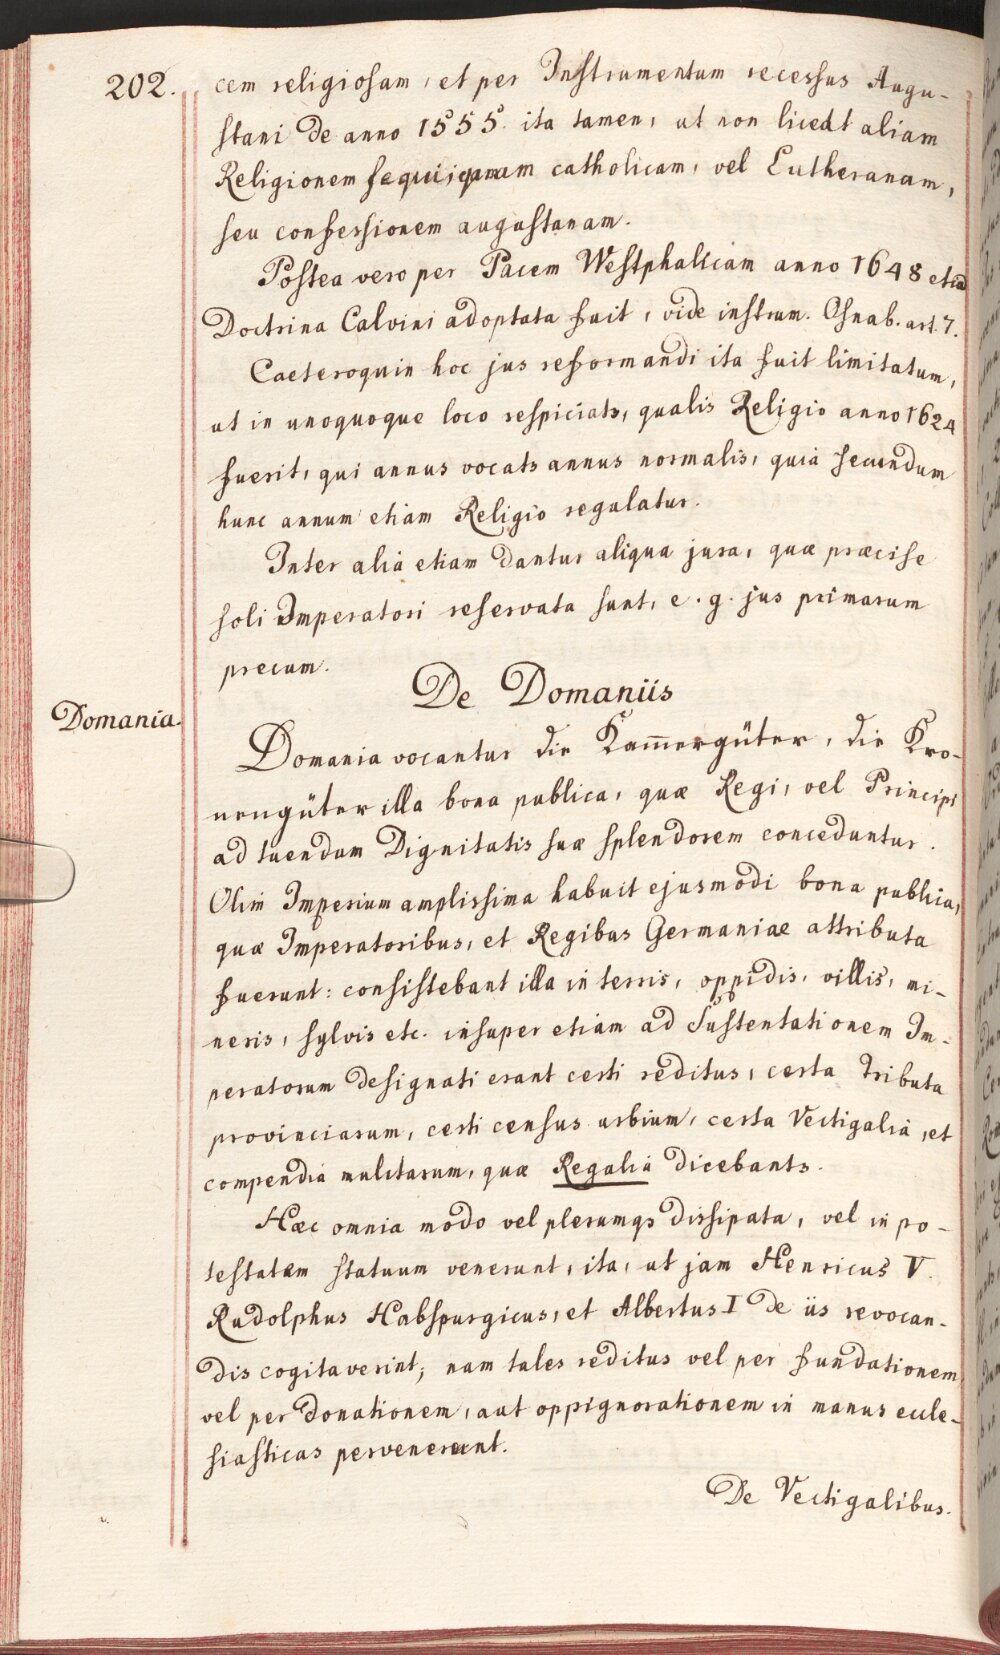 202.
cem religiosam, et per Instrumentum recessus Augu-
stani de anno 1555. ita tamen, ut non liceat aliam
Religionem sequi, quam catholicam, vel Lutheranam,
seu confessionem augustanam.
Postea vero per Pacem Westphalicam anno 1648 etiam
Doctrina Calvini adoptata fuit, vide instrum. Osnab. art. 7.
Caeteroquin hoc jus reformandi ita fuit limitatum,
ut in unoquoque loco respiciatr, qualis Religio anno 1624
fuerit, qui annus vocatr annus normalis, quia secundum
hunc annum etiam Religio regulatur.
Inter alia etiam dantur aliqua jura, quæ præcise
soli Imperatori reservata sunt, e. g. jus primarum
precum.
De Domaniis
Domania.
Domania vocantur die Kam̄ergüter, die Kro-
nengüter illa bona publica, quæ Regi, vel Principi
ad tuendam Dignitatis suæ splendorem conceduntur.
Olim Imperium amplissima habuit ejusmodi bona publica,
quæ Imperatoribus, et Regibus Germaniae attributa
fuerunt: consistebant illa in terris, oppidis, villis, mi-
neris, sylvis etc. insuper etiam ad Sustentationem Im-
peratorum designati erant certi reditus, certa Tributa
provinciarum, certi census urbium, certa Vectigalia, et
compendia mulctarum, quæ Regalia dicebantr.
Hæc omnia modo vel plerumqs dissipata, vel in po-
testatem statuum venerunt, ita, ut jam Henricus V.
Rudolphus Habspurgicus, et Albertus I de iis revocan-
dis cogitaverint; nam tales reditus vel per fundationem
vel per donationem, aut oppignorationem in manus eccle-
siasticas pervenerunt.
De Vectigalibus.